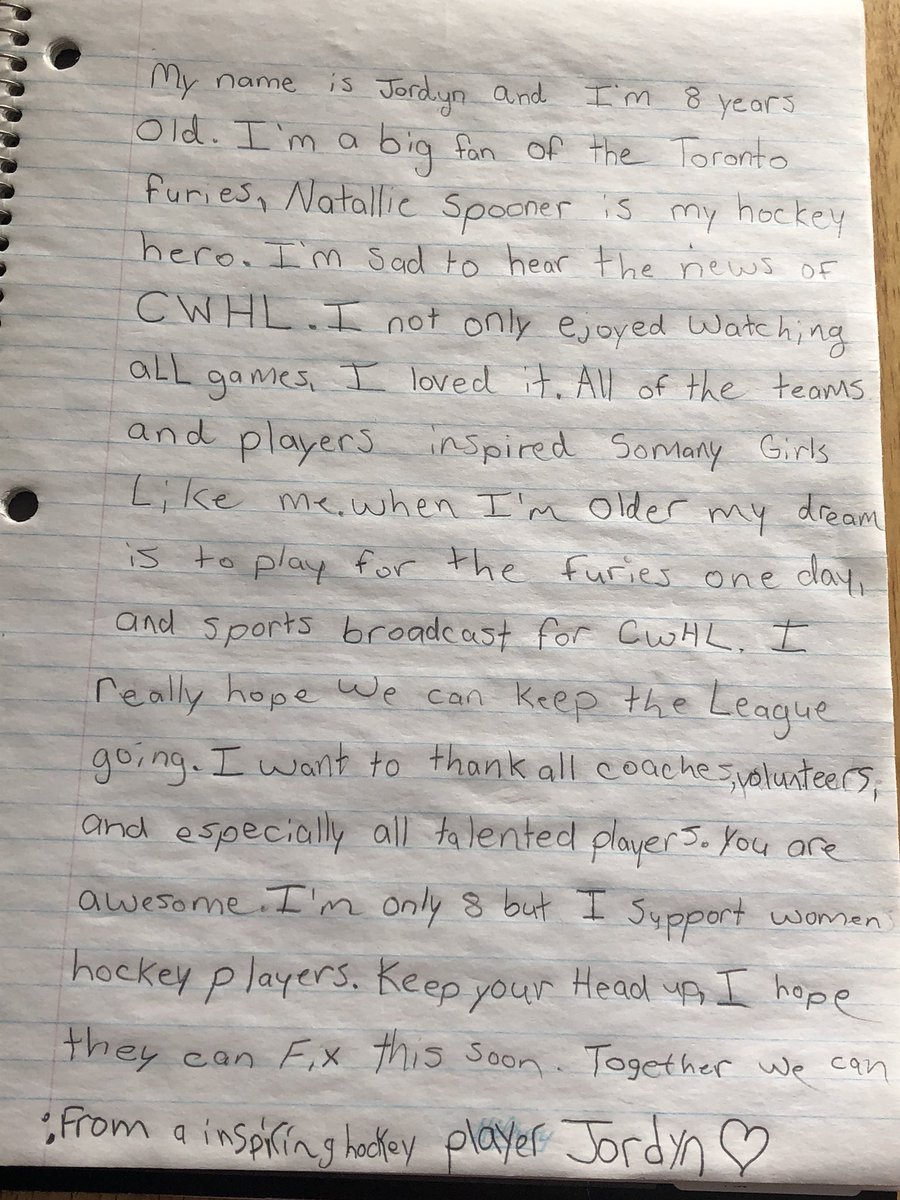 My name is Jordyn and I'm 8 years
Old. I'm a big fan of the Toronto
furies, Natallie Spooner is my hockey
hero. I'm sad to hear the news of
CWHL. I not only ejoyed watching
aLL games, I loved it. All of the teams
and players inspired Somany Girls
Like me. when I'm older my dream
is to play for the furies one day,
and sports broadcast for CWHL. I
really hope we can keep the League
going. I want to thank all coaches, volunteers,
and especially all talented players. You are
awesome. I'm only 8 but I support women
hockey players. Keep your Head up, I hope
they can Fix this soon. Together we can
:From a inspiring hockey player Jordyn ♡